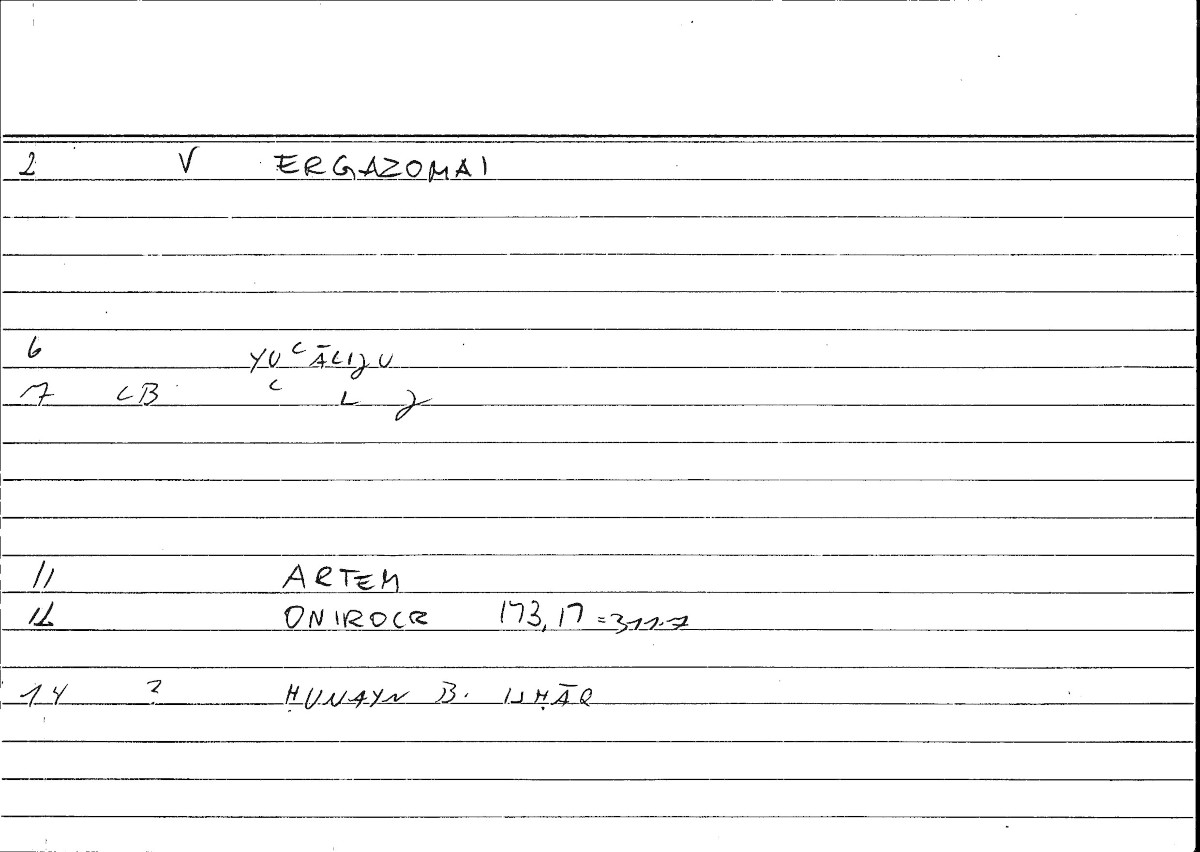 2 V ERGAZOMAI
6 YUʿĀLIǧU
7 CB ʿ L ǧ
11 ARTEM
12 ONIROCR 173,17 = 311.7
14 2 ḤUNAYN B. ISḤĀQ